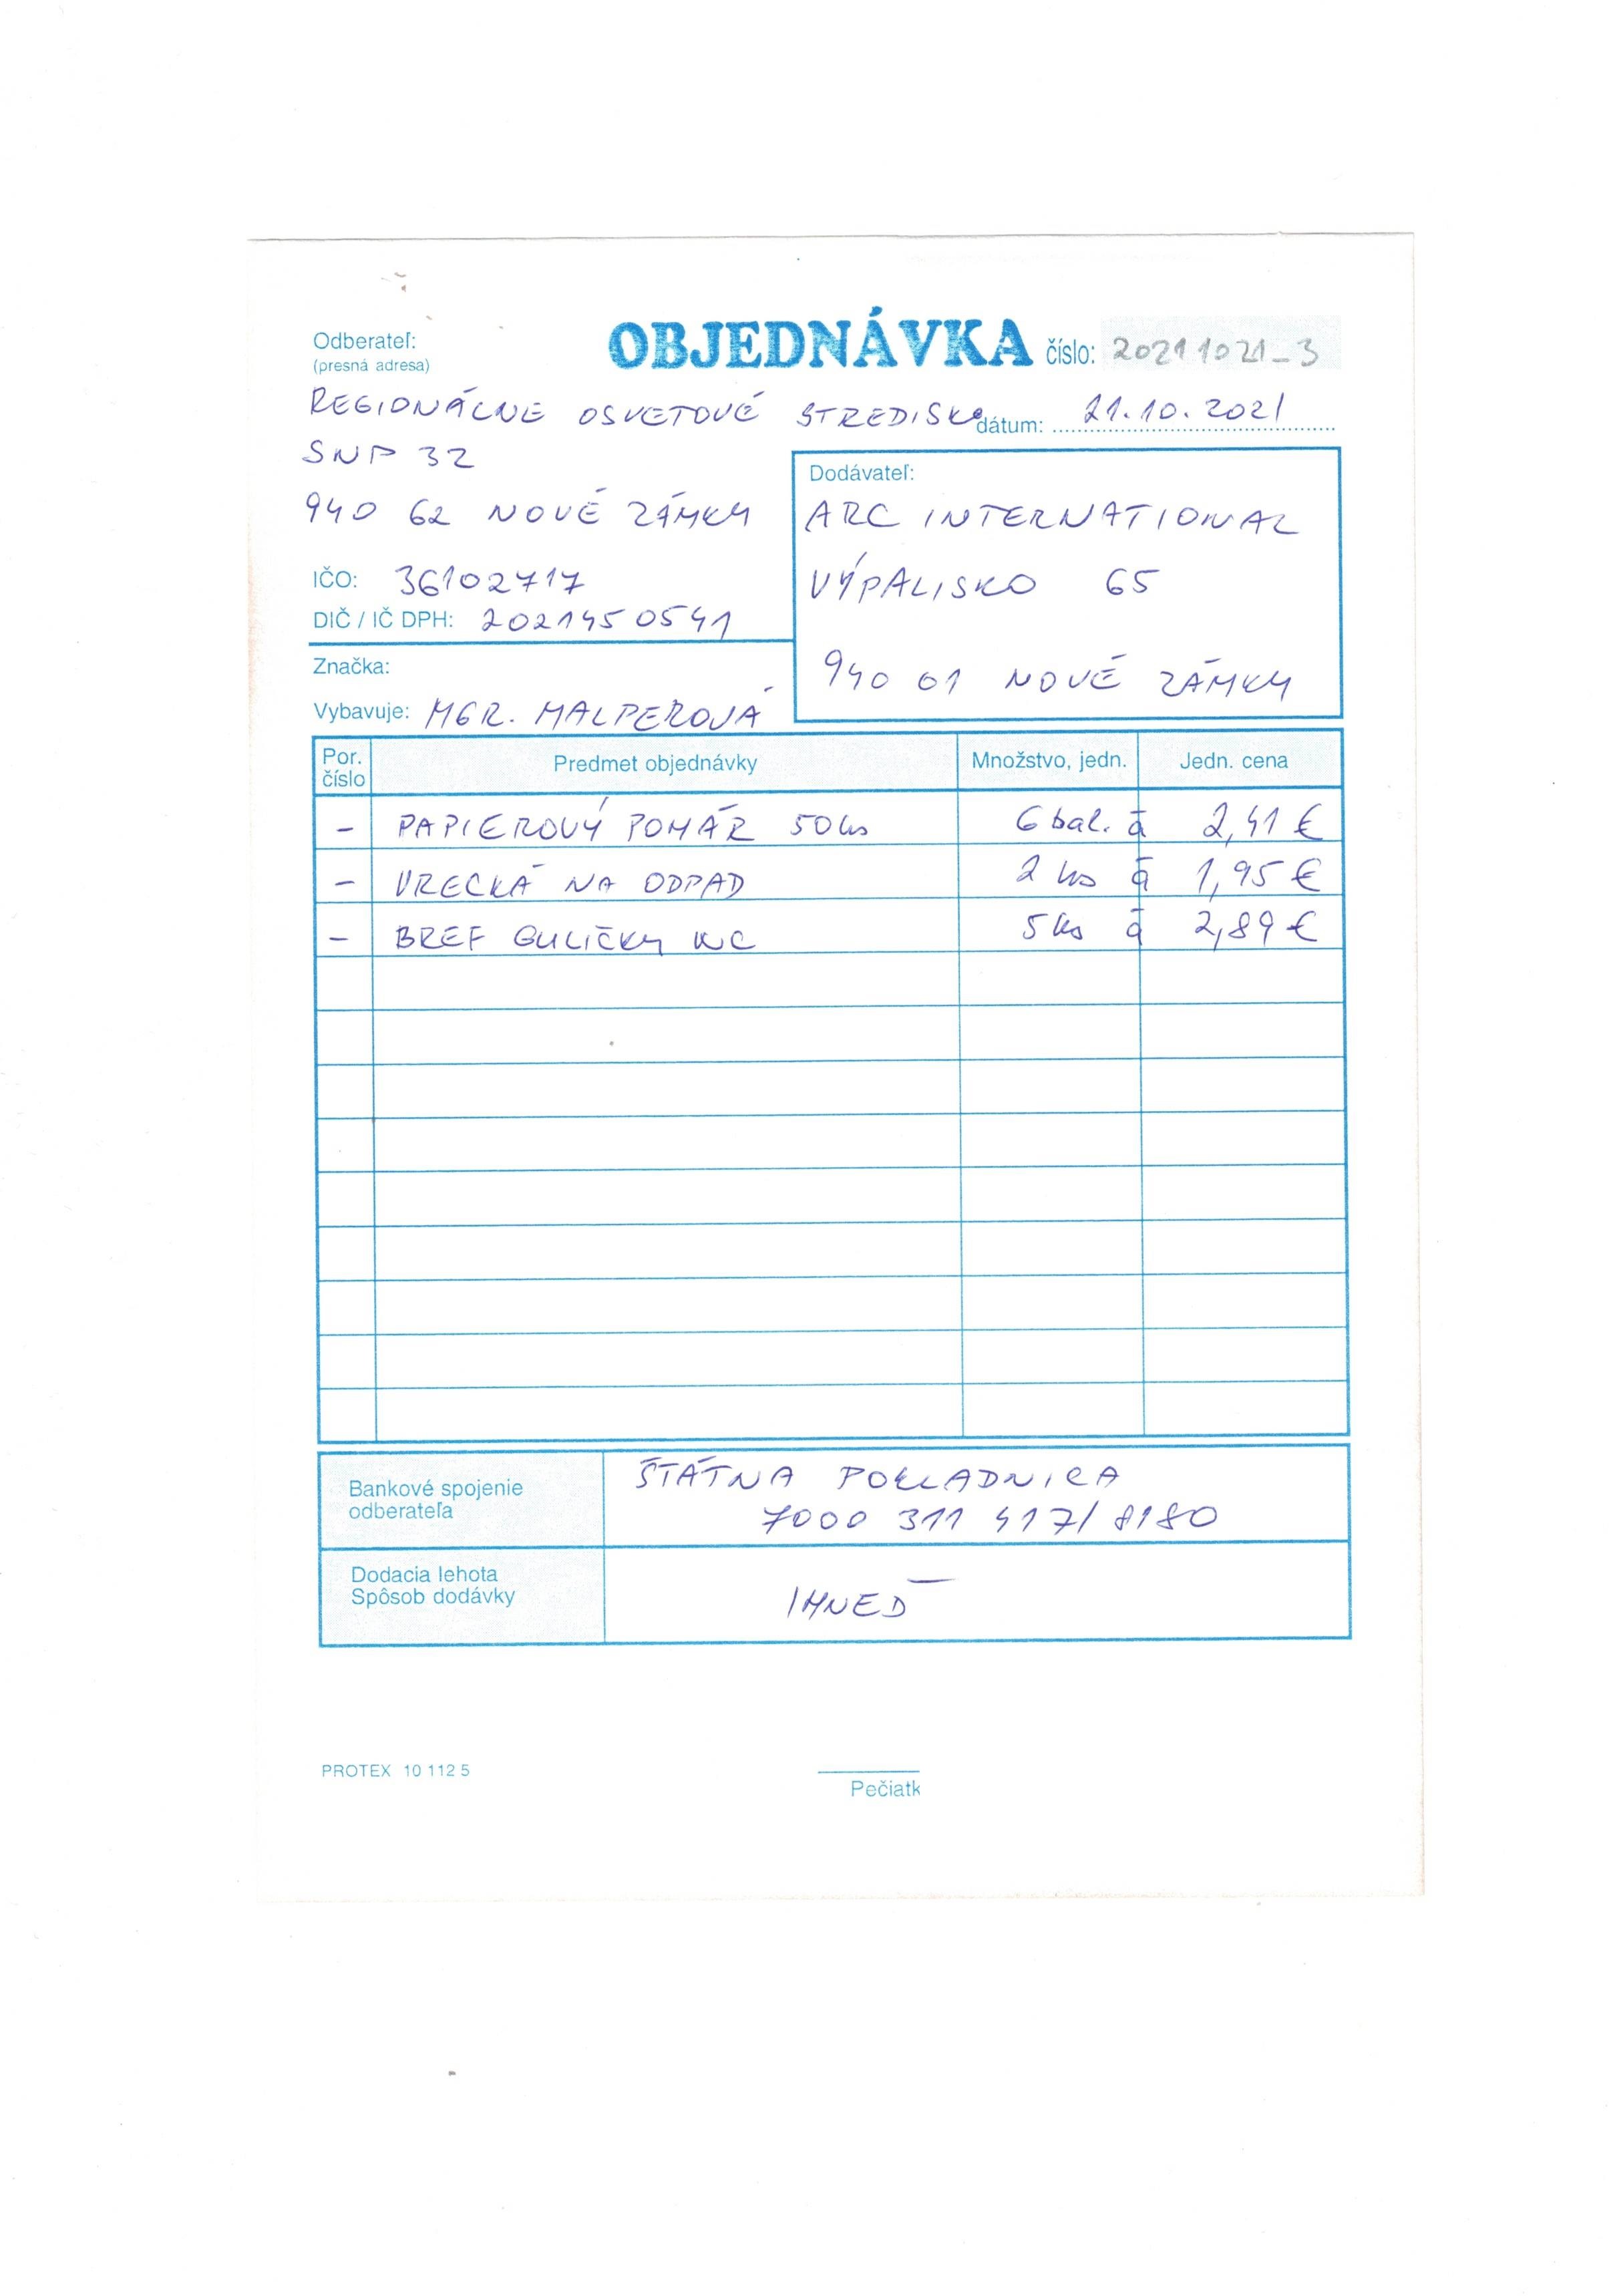 Odberateľ:
(presná adresa)
OBJEDNÁVKA číslo: 20211021_3
REGIONÁLNE OSVETOVÉ STREDISKO
dátum: 21.10.2021
SNP 32
940 62 NOVÉ ZÁMKY
IČO: 36102717
DIČ / IČ DPH: 2021450541
Dodávateľ:
ARC INTERNATIONAL
VÝPALISKO 65
940 01 NOVÉ ZÁMKY
Značka:
Vybavuje: MGR. MALPEROVÁ
Por. číslo Predmet objednávky Množstvo, jedn. Jedn. cena
– PAPIEROVÝ POHÁR 50ks 6 bal. á 2,41 €
– VRECKÁ NA ODPAD 2 ks á 1,95 €
– BREF GULIČKY WC 5 ks á 2,89 €
Bankové spojenie
odberateľa
ŠTÁTNA POKLADNICA
7000 311 417/8180
Dodacia lehota
Spôsob dodávky
IHNEĎ
PROTEX 10 112 5
Pečiatk